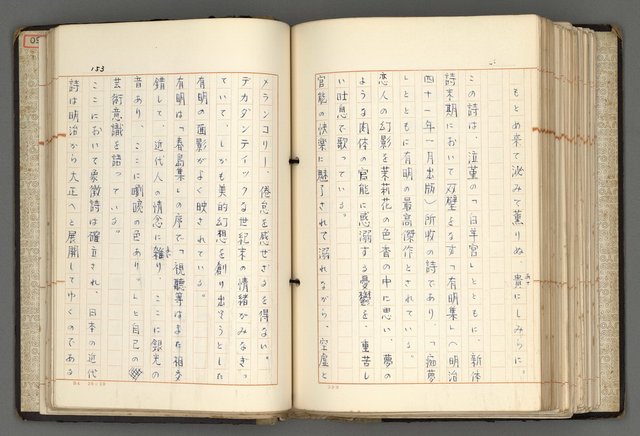 もとめ来て泌みて薫りぬ、貴にしみらに。
この詩は、泣菫の「白羊宮」とともに、新体
詩末期において双璧をなす「有明集」（明治
四十一年一月出版）所收の詩であり、「痴夢
」とともに有明の最高傑作とされている。
恋人の幻影を茉莉花の色香の中に思い、夢の
ような肉体の官能に惑溺する憂鬱を、重苦し
い吐息で歌っている。
官能の快楽に魅了されて溺れながら、空虚と
153
メランコリー、倦怠を感ぜざるを得ない。
デカダンティックな世紀末の情緒がみなぎっ
ていて、しかも美的幻想を創り出そうとした
有明の面影がよく映されている。
有明は「春鳥集」の序で「視聴等はまた相交
錯して、近代人の情念に雜り、ここに銀光の
音あり、ここに嚠喨の色あり。」と自己の
芸術意識を語っている。
ここにおいて象徴詩は確立され、日本の近代
詩は明治から大正へと展開してゆくのである